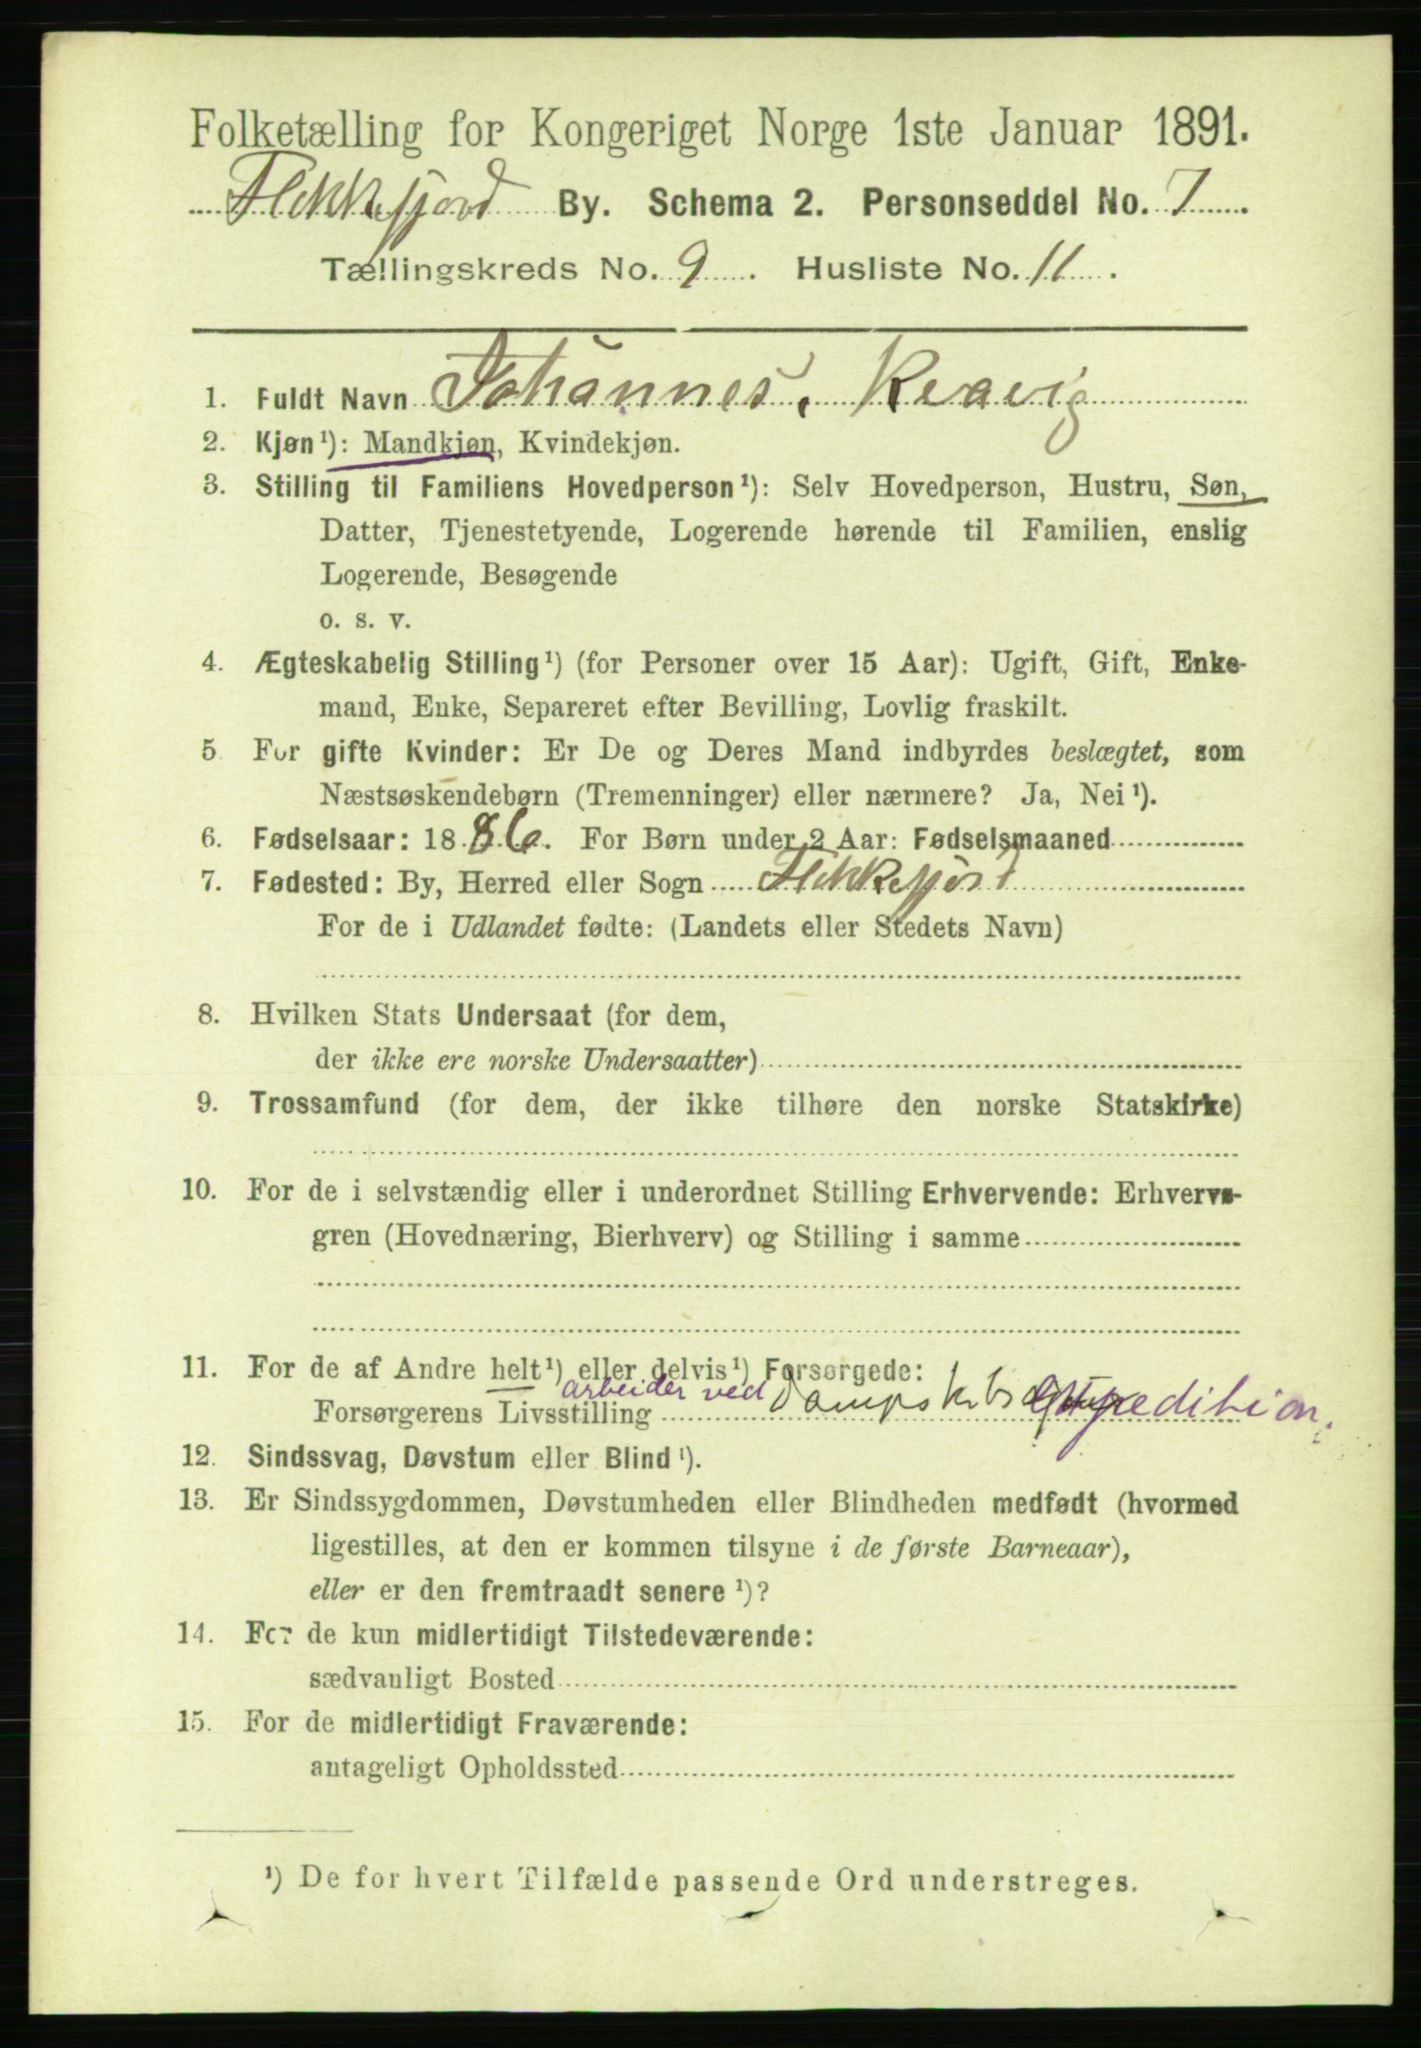 Folketælling for Kongeriget Norge 1ste Januar 1891.
Flekkefjord By. Schema 2. Personseddel No. 7.
Tællingskreds No. 9. Husliste No. 11.
1. Fuldt Navn Johannes, Kvavig
2. Kjøn¹): Mandkjøn, Kvindekjøn.
3. Stilling til Familiens Hovedperson¹): Selv Hovedperson, Hustru, Søn,
Datter, Tjenestetyende, Logerende hørende til Familien, enslig
Logerende, Besøgende
o. s. v.
4. Ægteskabelig Stilling¹) (for Personer over 15 Aar): Ugift, Gift, Enke-
mand, Enke, Separeret efter Bevilling, Lovlig fraskilt.
5 For gifte Kvinder: Er De og Deres Mand indbyrdes beslægtet, som
Næstsøskendebørn (Tremenninger) eller nærmere? Ja, Nei¹).
6. Fødselsaar: 1886. For Børn under 2 Aar: Fødselsmaaned
7. Fødested: By, Herred eller Sogn Flekkefjord
For de i Udlandet fødte: (Landets eller Stedets Navn)
8. Hvilken Stats Undersaat (for dem,
der ikke ere norske Undersaatter)
9. Trossamfund (for dem, der ikke tilhøre den norske Statskirke)
10. For de i selvstændig eller i underordnet Stilling Erhvervende: Erhvervs-
gren (Hovednæring, Bierhverv) og Stilling i samme
11. For de af Andre helt¹) eller delvis¹) Forsørgede:
arbeider ved
Forsørgerens Livsstilling Dampskibsexpedition.
12. Sindssvag, Døvstum eller Blind¹).
13. Er Sindssygdommen, Døvstumheden eller Blindheden medfødt (hvormed
ligestilles, at den er kommen tilsyne i de første Barneaar),
eller er den fremtraadt senere¹)?
14. For de kun midlertidigt Tilstedeværende:
sædvanligt Bosted
15. For de midlertidigt Fraværende:
antageligt Opholdssted
¹) De for hvert Tilfælde passende Ord understreges.